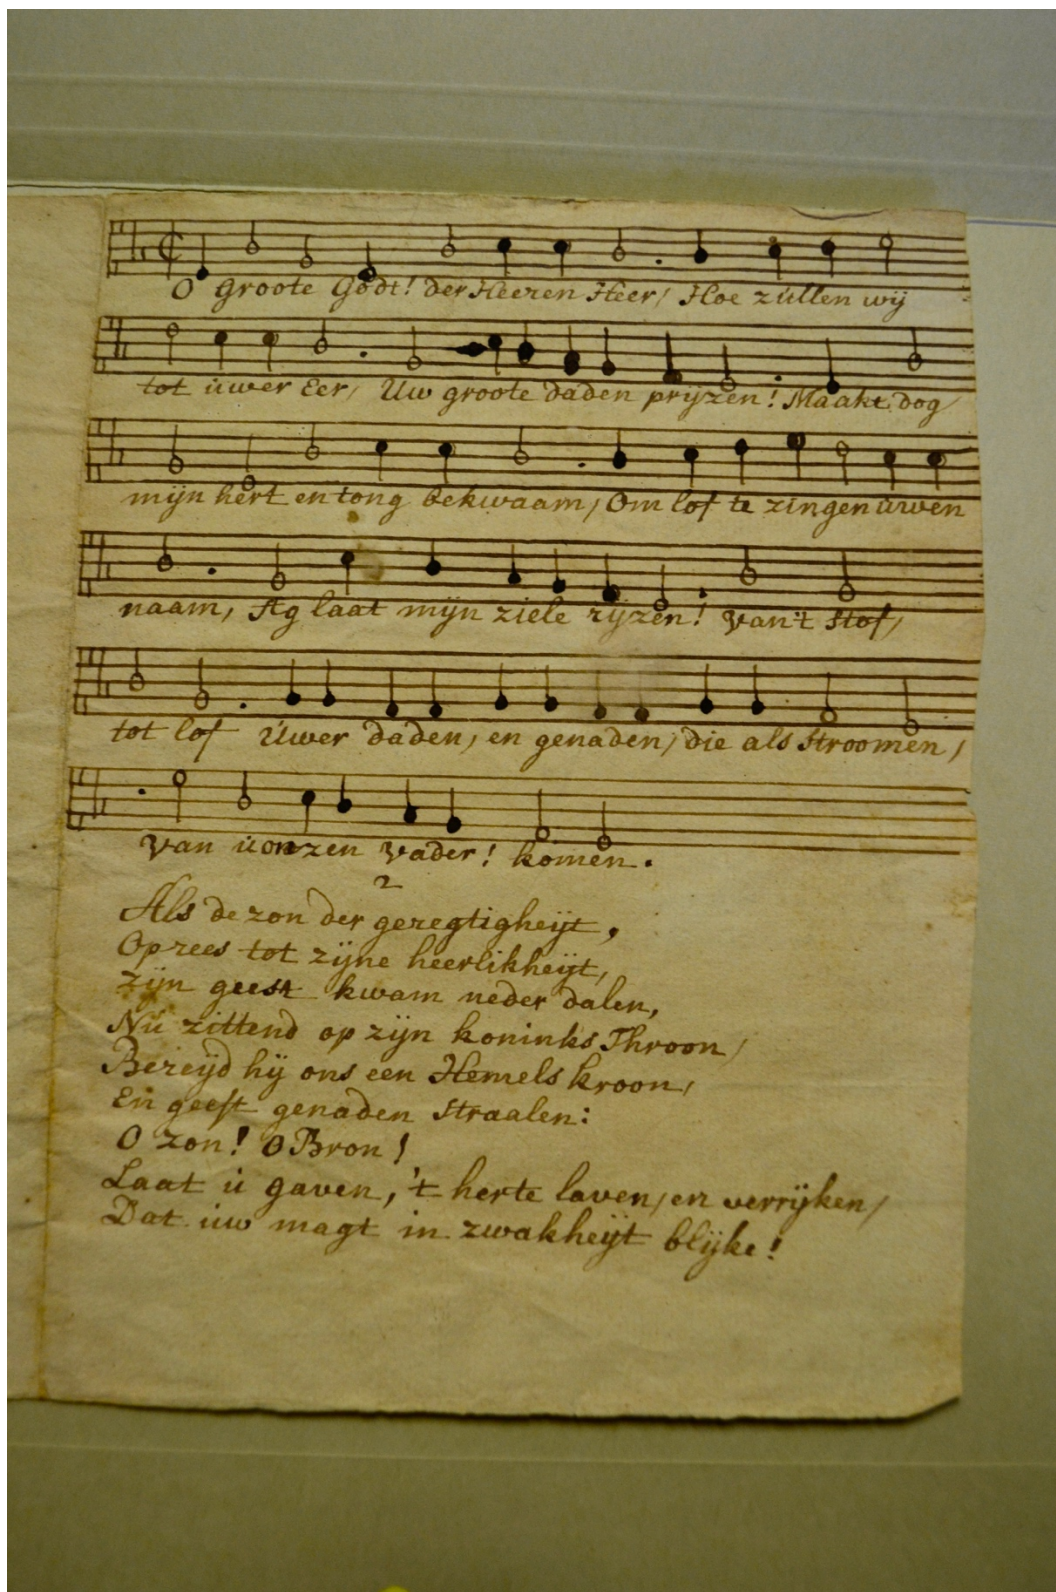 O groote Godt! der Heeren Heer, Hoe zúllen wÿ
tot úwer Eer, Uw groote daden prÿzen! Maakt dog
mÿn hert en tong bekwaam, Om lof te zingen úwen
naam, Ag laat mÿn ziele rÿzen! van't stof,
tot lof Úwer daden, en genaden, die als Stroomen,
van ú onzen vader! komen.
2
Als de zon der geregtigheÿt,
Op rees tot zÿne heerlikheÿt,
zÿn geest kwam neder dalen,
Nú zittend op zÿn koninks Throon,
Bereÿd hÿ ons een Hemels kroon,
En geest genaden Straalen:
O zon! O Bron!
Laat ú gaven, 't herte laven, en verrÿken,
Dat úw magt in zwakheÿt blÿke!